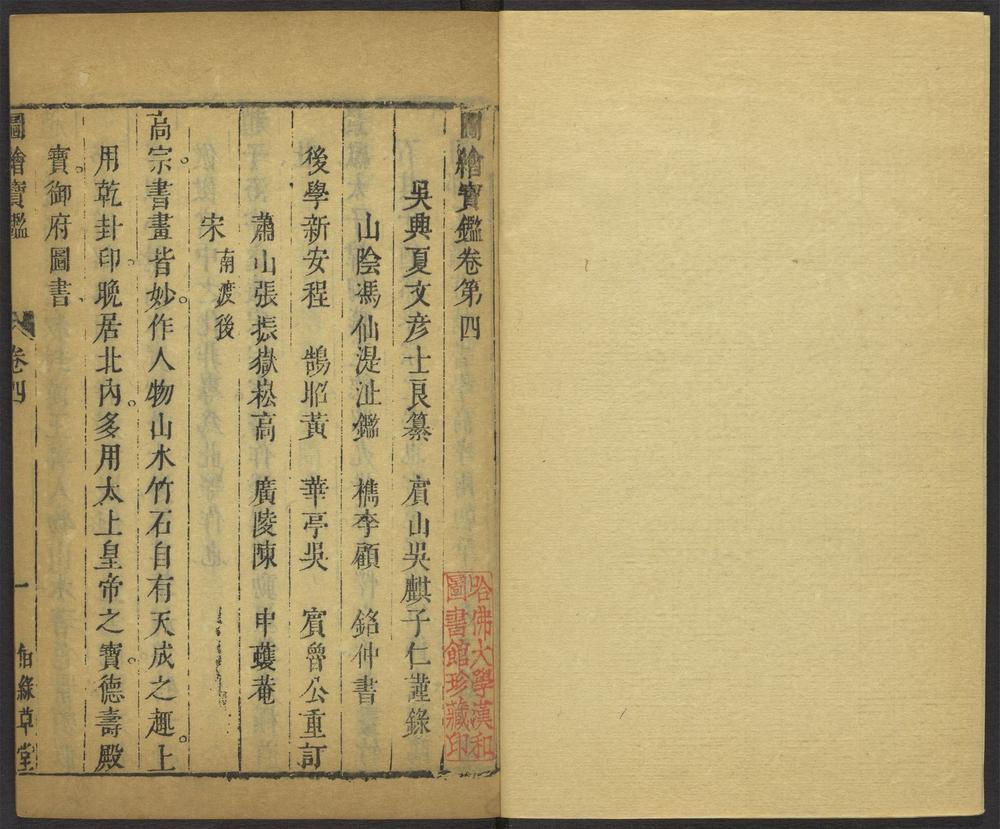 圖繪寶鑑卷第四
吳興夏文彥士良纂　賓山吳麒子仁謹錄
山陰馮仙湜沚鑑　檇李顧　銘仲書
後學新安程　鵠昭黃　華亭吳　賓魯公重訂
蕭山張振嶽崧高　廣陵陳　申蘧菴
宋南渡後
高宗書畫皆妙作人物山水竹石自有天成之趣上
用乾卦印晚居北內多用太上皇帝之寶德壽殿
寶御府圖書
圖繪寶鑑　卷四　一　借綠草堂
哈佛大學漢和
圖書館珍藏印